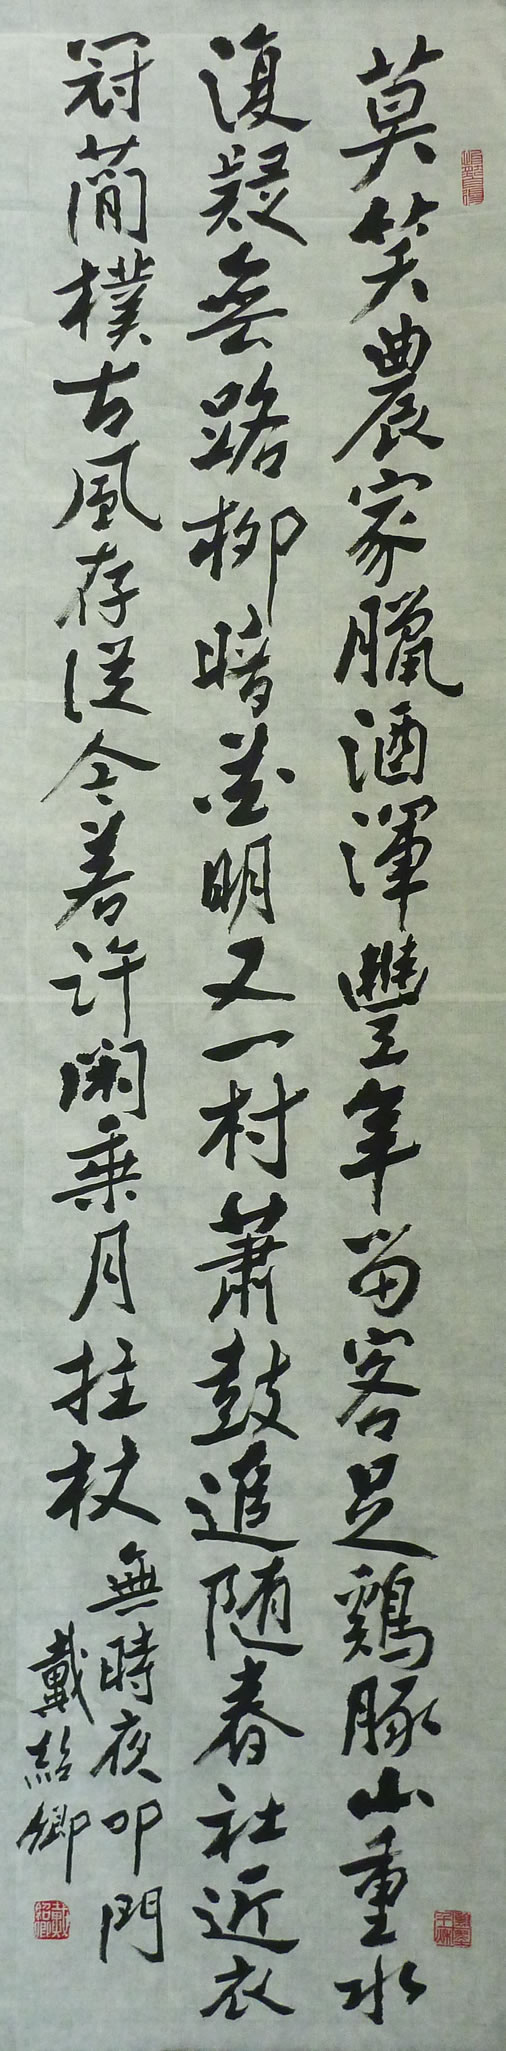 莫笑農家臘酒渾豐年留客足鷄豚山重水
復疑無路柳暗花明又一村蕭鼓追随春社近衣
冠蕳樸古風存從今若許閑乗月拄杖
無時夜叩門
戴紹卿